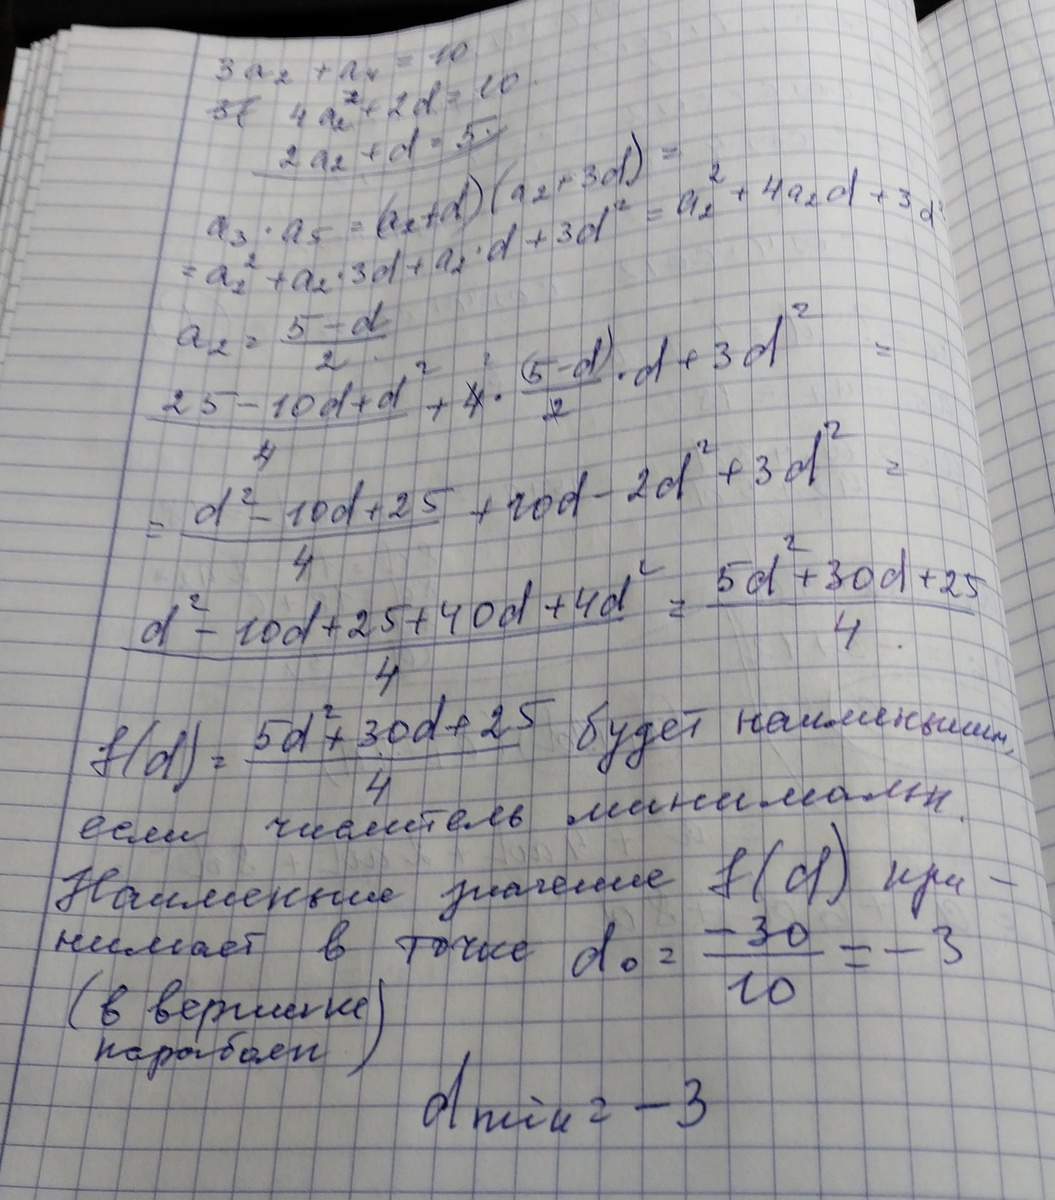 3a₂ + a₄ = 10
4a₂² + 2d = 10
2a₂ + d = 5
a₃ · a₅ = (a₂+d)(a₂+3d) =
= a₂² + a₂·3d + a₂·d + 3d² = a₂² + 4a₂d + 3d²
a₂ = (5-d)/2
(25-10d+d²)/4 + 4 · (5-d)/2 · d + 3d² =
= (d²-10d+25)/4 + 10d - 2d² + 3d² =
(d²-10d+25+40d+4d²)/4 = (5d²+30d+25)/4
f(d) = (5d²+30d+25)/4 будет наименьшим,
если числитель минимальн.
Наименьше значение f(d) при-
нимает в точке d₀ = -30/10 = -3
(в вершине
параболы)
dmin = -3